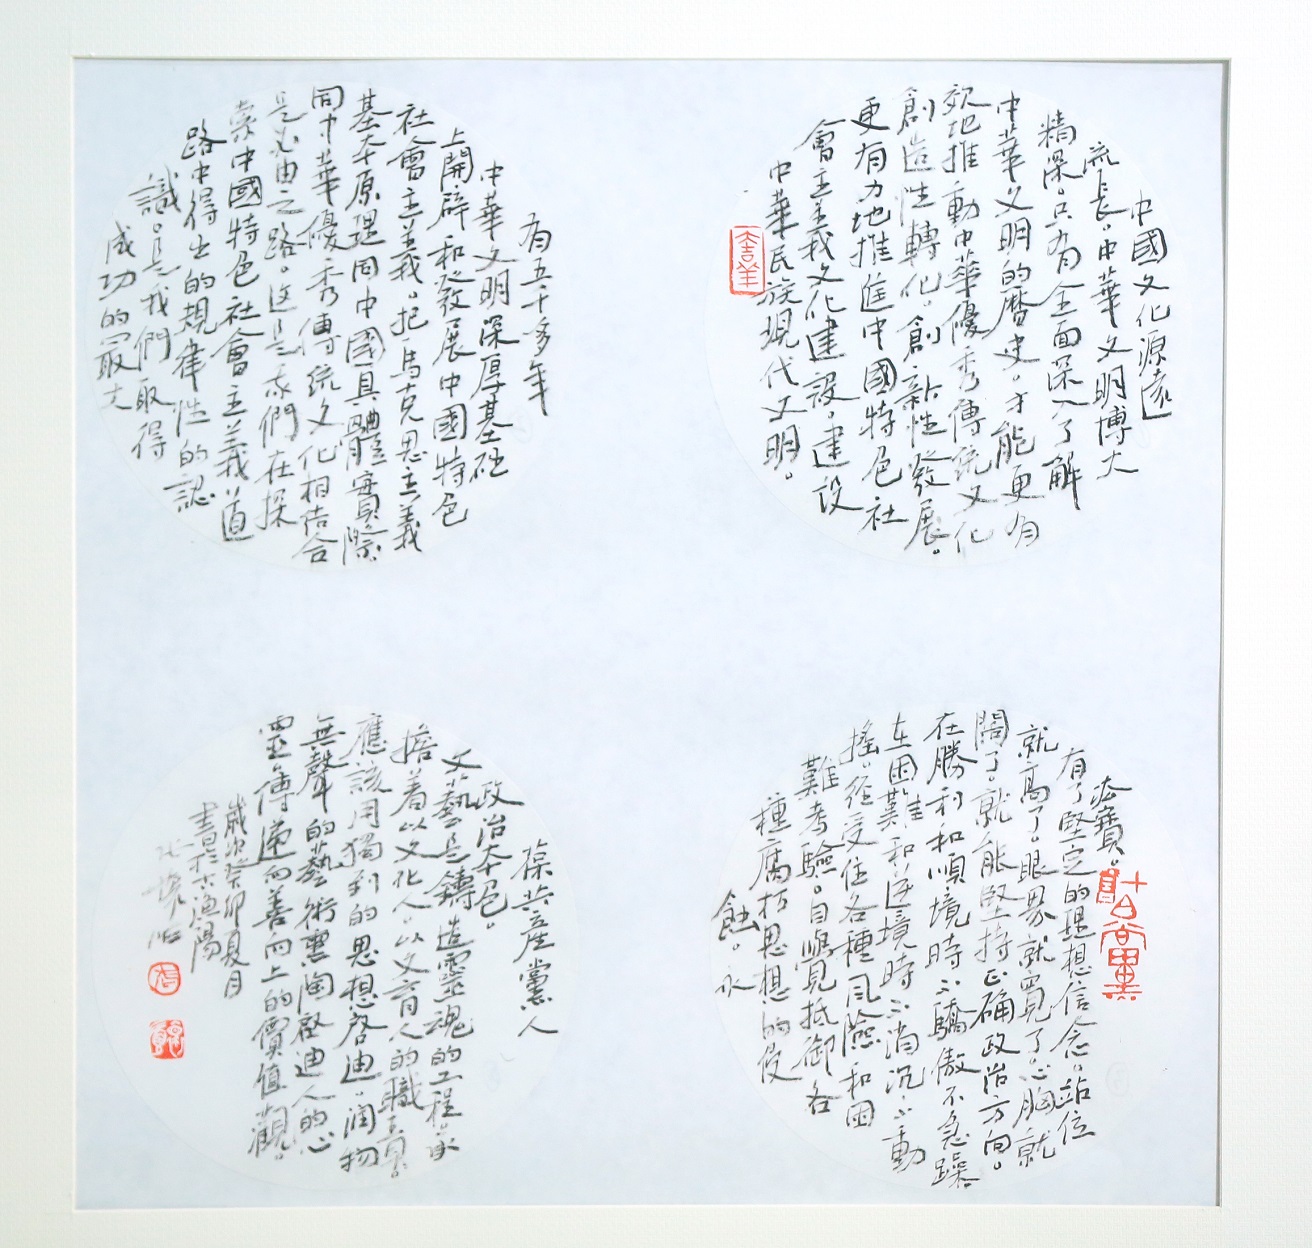 中國文化源遠
流長。中華文明博大
精深。只有全面深入了解
中華文明的歷史。才能更有
效地推動中華優秀傳統文化
創造性轉化。創新性發展。
更有力地推進中國特色社
會主義文化建設。建設
中華民族現代文明。
有五千多年
中華文明深厚基礎
上開辟和發展中國特色
社會主義。把馬克思主義
基本原理同中國具體實際
同中華優秀傳統文化相結合
是必由之路。這是我們在探
索中國特色社會主義道
路中得出的規律性的認
識。是我們取得
成功的最大
法寶。
有了堅定的理想信念。站位
就高了。眼界就寬了。心胸就
闊了。就能堅持正确政治方向。
在勝利和順境時不驕傲不急躁。
在困難和逆境時不消沉不動
搖。經受住各種風險和困
難考驗。自覺抵御各
種腐朽思想的侵
蝕。永
葆共產黨人
政治本色。
文藝是鑄造靈魂的工程。承
擔着以文化人。以文育人的職責。
應該用獨到的思想啓迪。潤物
無聲的藝術熏陶啟迪人的心
靈。傳遞向善向上的價值觀。
歲次癸卯夏月
書於古漁陽